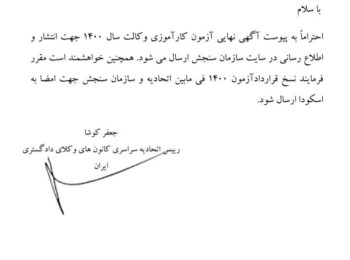 با سلام
احتراماً به پیوست آگهی نهایی آزمون کارآموزی وکالت سال ۱۴۰۰ جهت انتشار و
اطلاع رسانی در سایت سازمان سنجش ارسال می شود. همچنین خواهشمند است مقرر
فرمایند نسخ قراردادآزمون ۱۴۰۰ فی مابین اتحادیه و سازمان سنجش جهت امضا به
اسکودا ارسال شود.
جعفر کوشا
رییس اتحادیه سراسری کانون های وکلای دادگستری
ایران